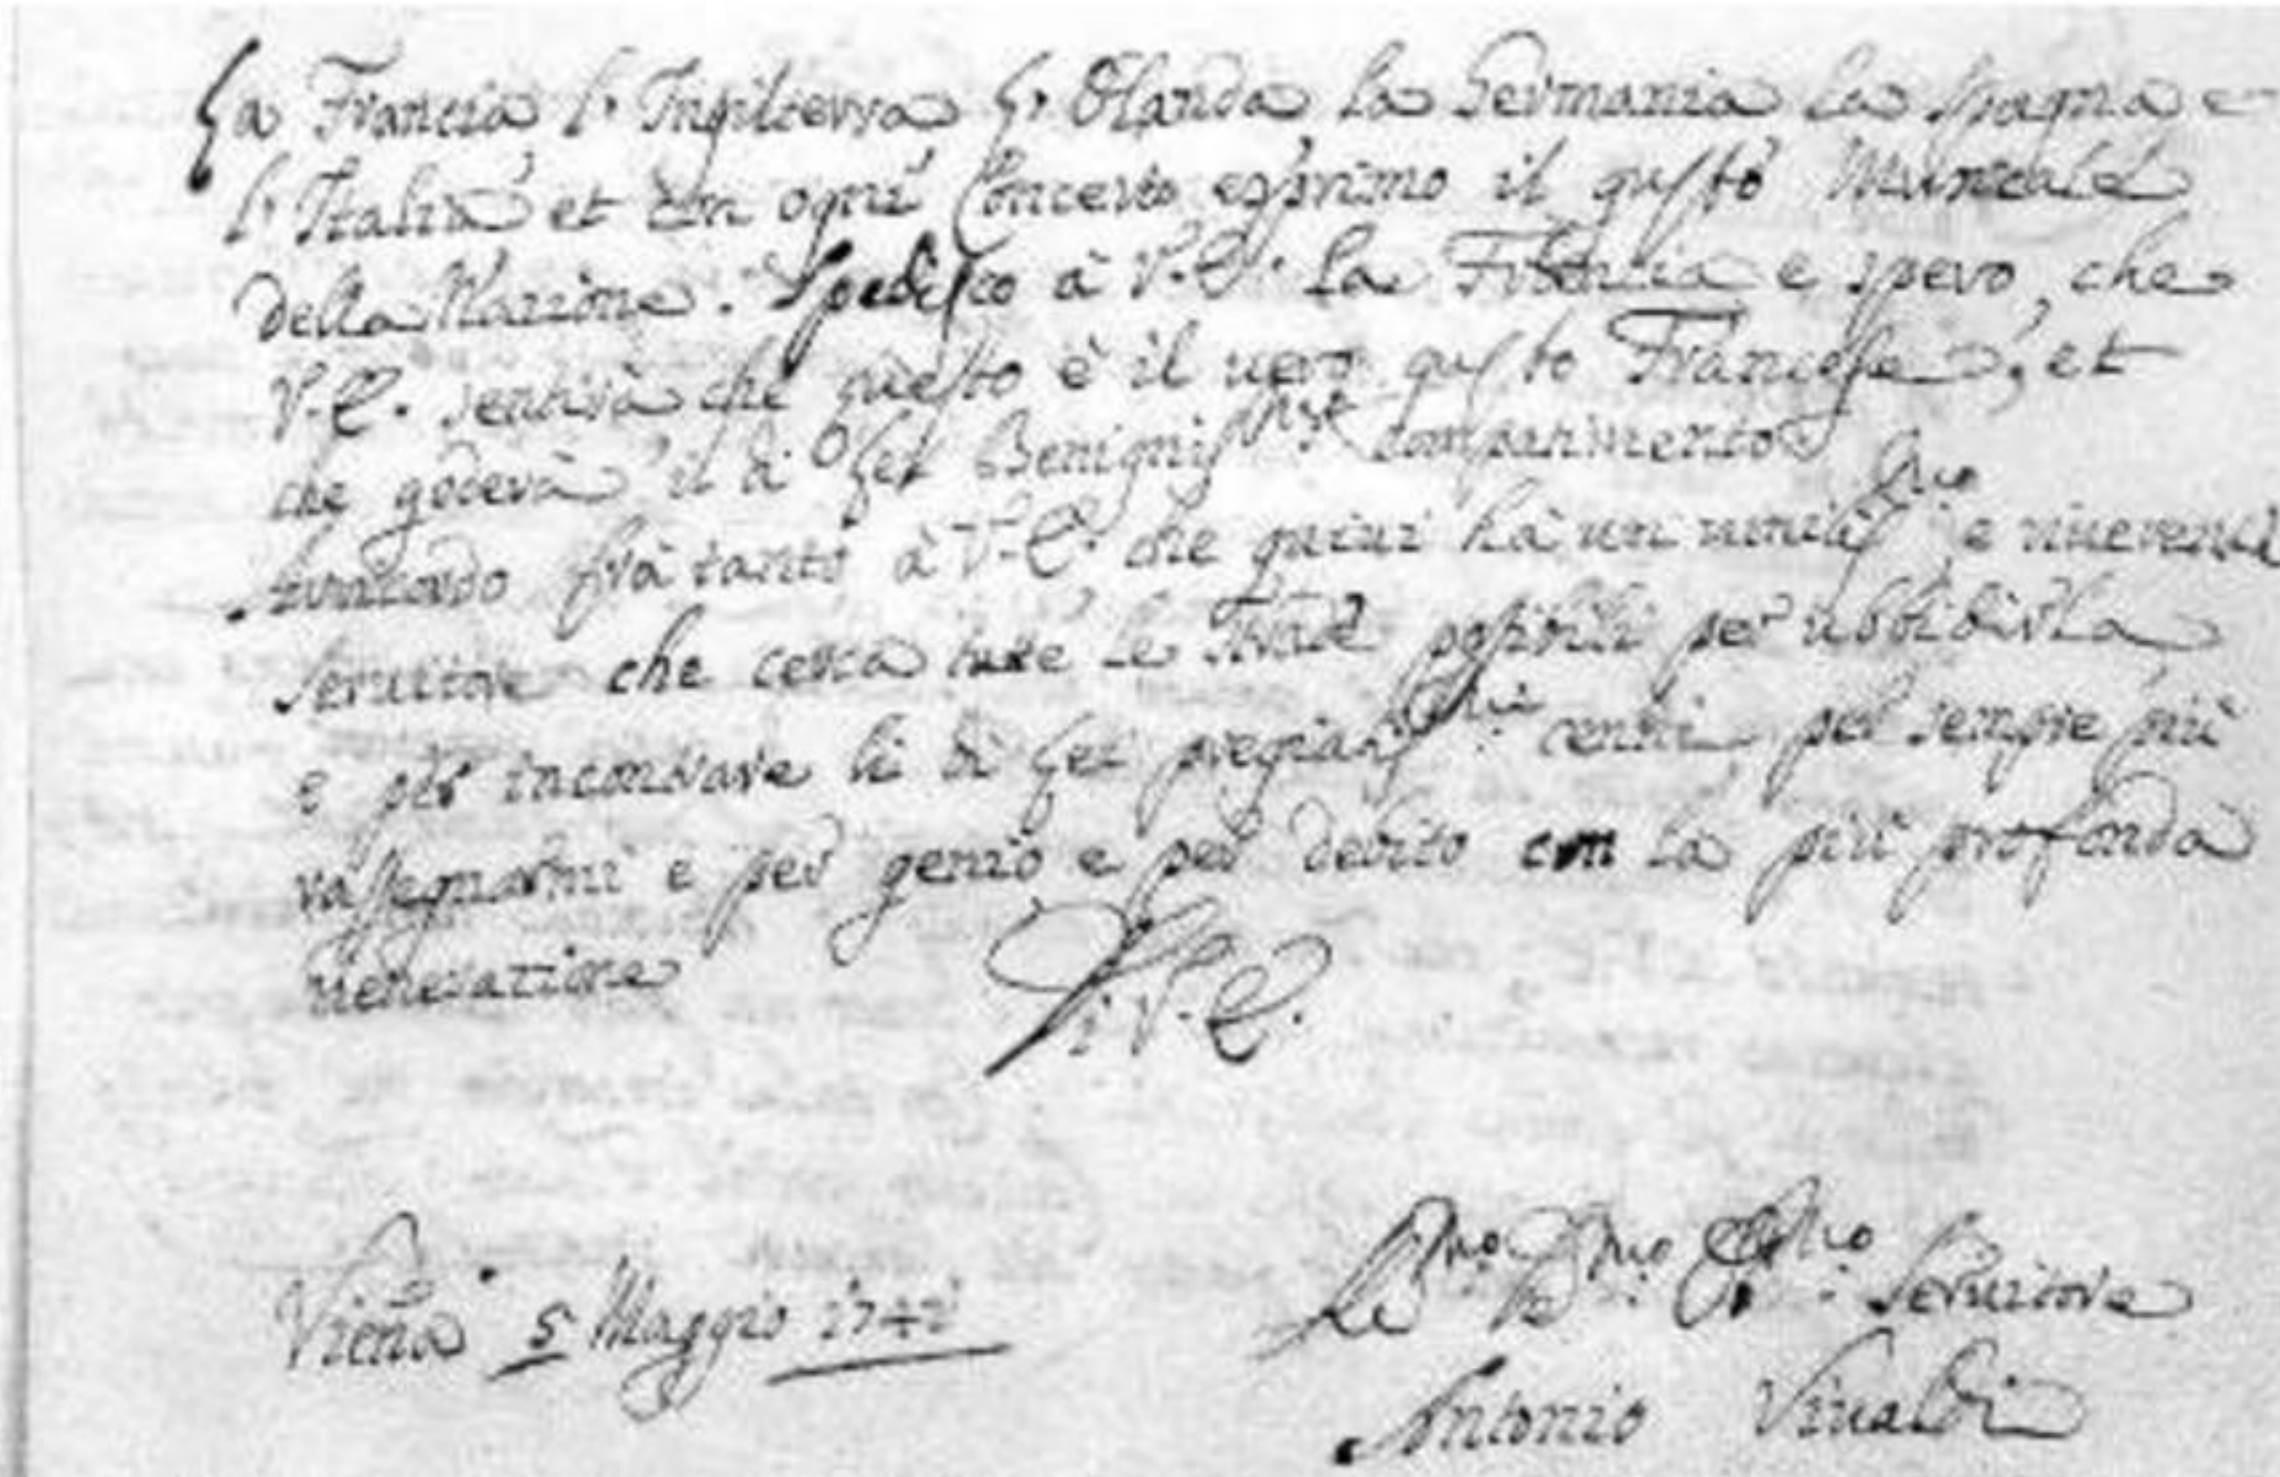 La Francia l'Ingilterra L'Olanda la Germania la Spagna e
l'Italia et con ogni Concerto esprimo il gusto Musicale
della Nazione. Spedisco à V.E. la Francia e spero, che
V.E. sentirà che questo è il uero gusto Francese, et
che goderà il di Lei Benigniss.mo compatimento
frà tanto à V.E. che quiui hà un umiliss.mo e riuerente
Seruitore che cerca tutte le strade possibili per ubbidirla
e per incontrare li di Lei pregiatiss.mi cenni, per sempre più
rassegnarmi e per genio e per debito con la più profonda
uenerazione
Di V.E.
Viena 5 Maggio 1741
Seruitore
Antonio Viualdi